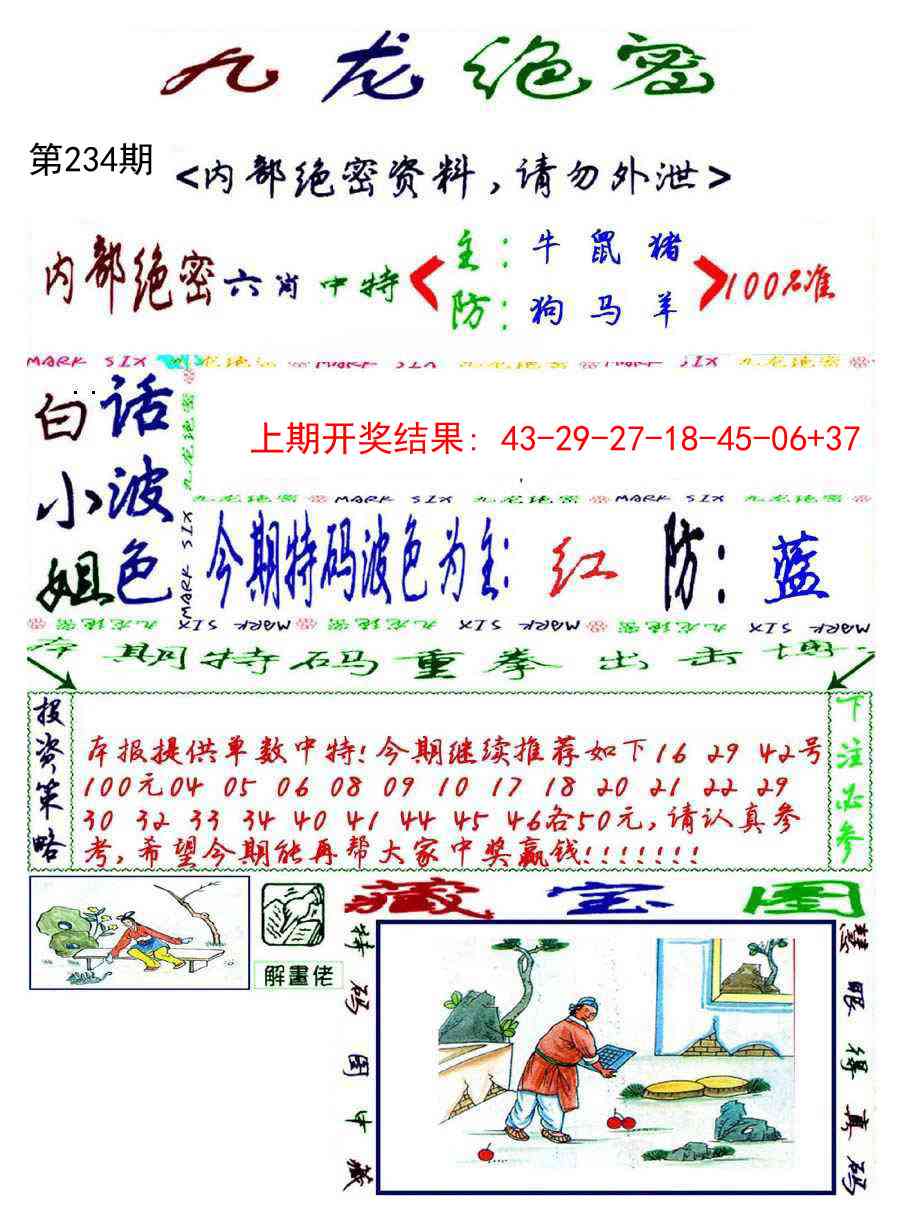 九龙绝密
第234期
<内部绝密资料,请勿外泄>
内部绝密六肖中特
主:牛 鼠 猪
防:狗 马 羊
100%准
MARK SIX 九龙绝密 MARK SIX 九龙绝密 MARK SIX 九龙绝密
白小姐
话波色
九龙绝密
MARK SIX
上期开奖结果: 43-29-27-18-45-06+37
九龙绝密 MARK SIX 九龙绝密 MARK SIX 九龙绝密 MARK SIX
今期特码波色为主: 红 防: 蓝
九龙绝密 MARK SIX 九龙绝密 MARK SIX 九龙绝密 MARK SIX
本期特码重拳出击
投资策略
本报提供单数中特!今期继续推荐如下16 29 42号
100元04 05 06 08 09 10 17 18 20 21 22 29
30 32 33 34 40 41 44 45 46各50元,请认真参
考,希望今期能再帮大家中奖赢钱!!!!!!!
下注必参
解畫佬
藏宝图
特码图中藏
慧眼得真码